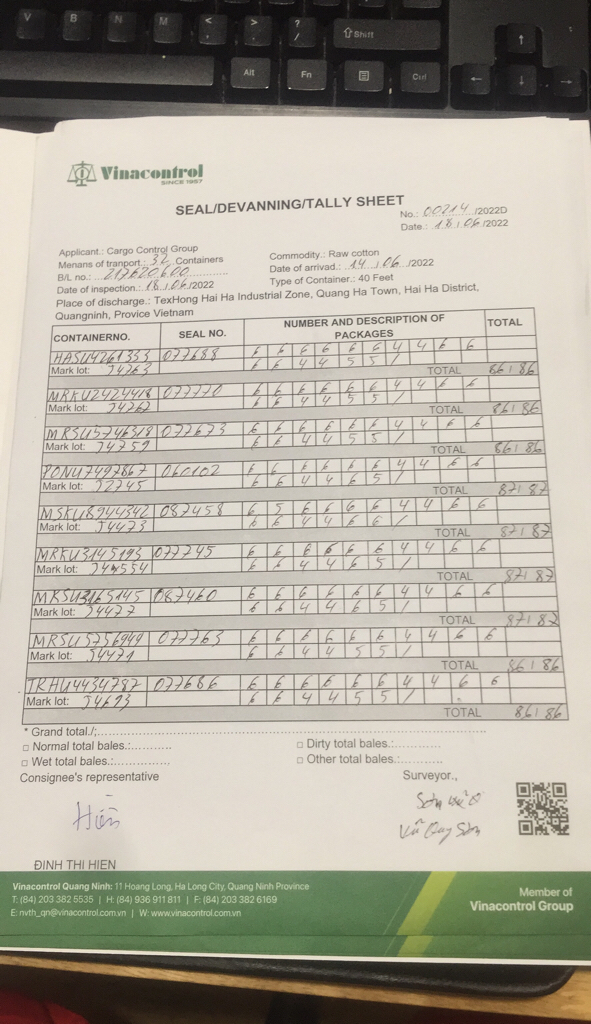 V B N M < , > . ? / ⇧ Shift ↑
Alt Fn Ctrl ← ↓ →
Vinacontrol
SINCE 1957
SEAL/DEVANNING/TALLY SHEET
No.: 00214 /2022D
Date : 18 / 06 /2022
Applicant.: Cargo Control Group
Commodity.: Raw cotton
Menans of tranport.: 32 Containers
Date of arrivad.: 14 / 06 /2022
B/L no.: 217620600
Type of Container.: 40 Feet
Date of inspection.: 18 / 06 /2022
Place of discharge.: TexHong Hai Ha Industrial Zone, Quang Ha Town, Hai Ha District,
Quangninh, Provice Vietnam
CONTAINERNO. SEAL NO. NUMBER AND DESCRIPTION OF PACKAGES TOTAL
HASU4261333 077688 6 6 6 6 6 6 4 4 6 6
Mark lot: J4763 6 6 4 4 5 5 /
TOTAL 86 / 86
MRKU2424418 077770 6 6 6 6 6 6 4 4 6 6
Mark lot: J4762 6 6 4 4 5 5 /
TOTAL 86 / 86
MRSU5746318 077673 6 6 6 6 6 6 4 4 6 6
Mark lot: J4759 6 6 4 4 5 5 /
TOTAL 86 / 86
PONU7497867 060102 6 6 6 6 6 6 4 4 6 6
Mark lot: J2745 6 6 4 4 6 5 /
TOTAL 87 / 87
MSKU8944342 087458 6 5 6 6 6 6 4 4 6 6
Mark lot: J4473 6 6 4 4 6 6 /
TOTAL 87 / 87
MRKU3145193 077745 6 6 6 6 6 6 4 4 6 6
Mark lot: 6 6 4 4 6 5 /
TOTAL 87 / 87
MRSU3165145 087460 6 6 6 6 6 6 4 4 6 6
Mark lot: J4477 6 6 4 4 6 5 /
TOTAL 87 / 87
MRSU5756949 077763 6 6 6 6 6 6 4 4 6 6
Mark lot: J4471 6 6 4 4 5 5 /
TOTAL 86 / 86
TRHU4434787 077686 6 6 6 6 6 6 4 4 6 6
Mark lot: J4693 6 6 4 4 5 5 /
TOTAL 86 / 86
* Grand total./;
□ Normal total bales.:
□ Dirty total bales.:
□ Wet total bales.:
□ Other total bales.:
Consignee's representative
Surveyor.,
Hiên
Vũ Quý Sơn
ĐINH THI HIEN
Vinacontrol Quang Ninh: 11 Hoang Long, Ha Long City, Quang Ninh Province
T: (84) 203 382 5535 | H: (84) 936 911 811 | F: (84) 203 382 6169
E: nvth_qn@vinacontrol.com.vn | W: www.vinacontrol.com.vn
Member of
Vinacontrol Group